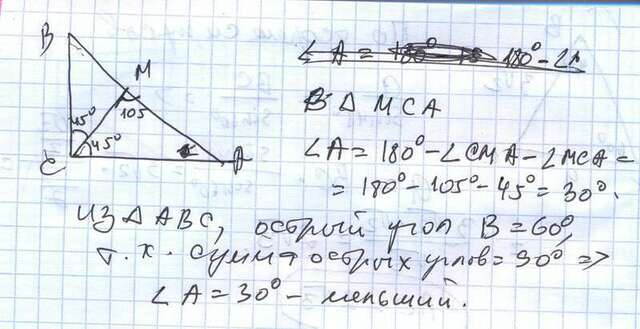 B
M
105
45°
45°
C
A
∠A = 180° - ∠
В △ MCA
∠A = 180° - ∠CMA - ∠MCA =
= 180° - 105° - 45° = 30°.
из △ ABC, острый угол B = 60°,
т.к. сумма острых углов = 90° =>
∠A = 30° - меньший.